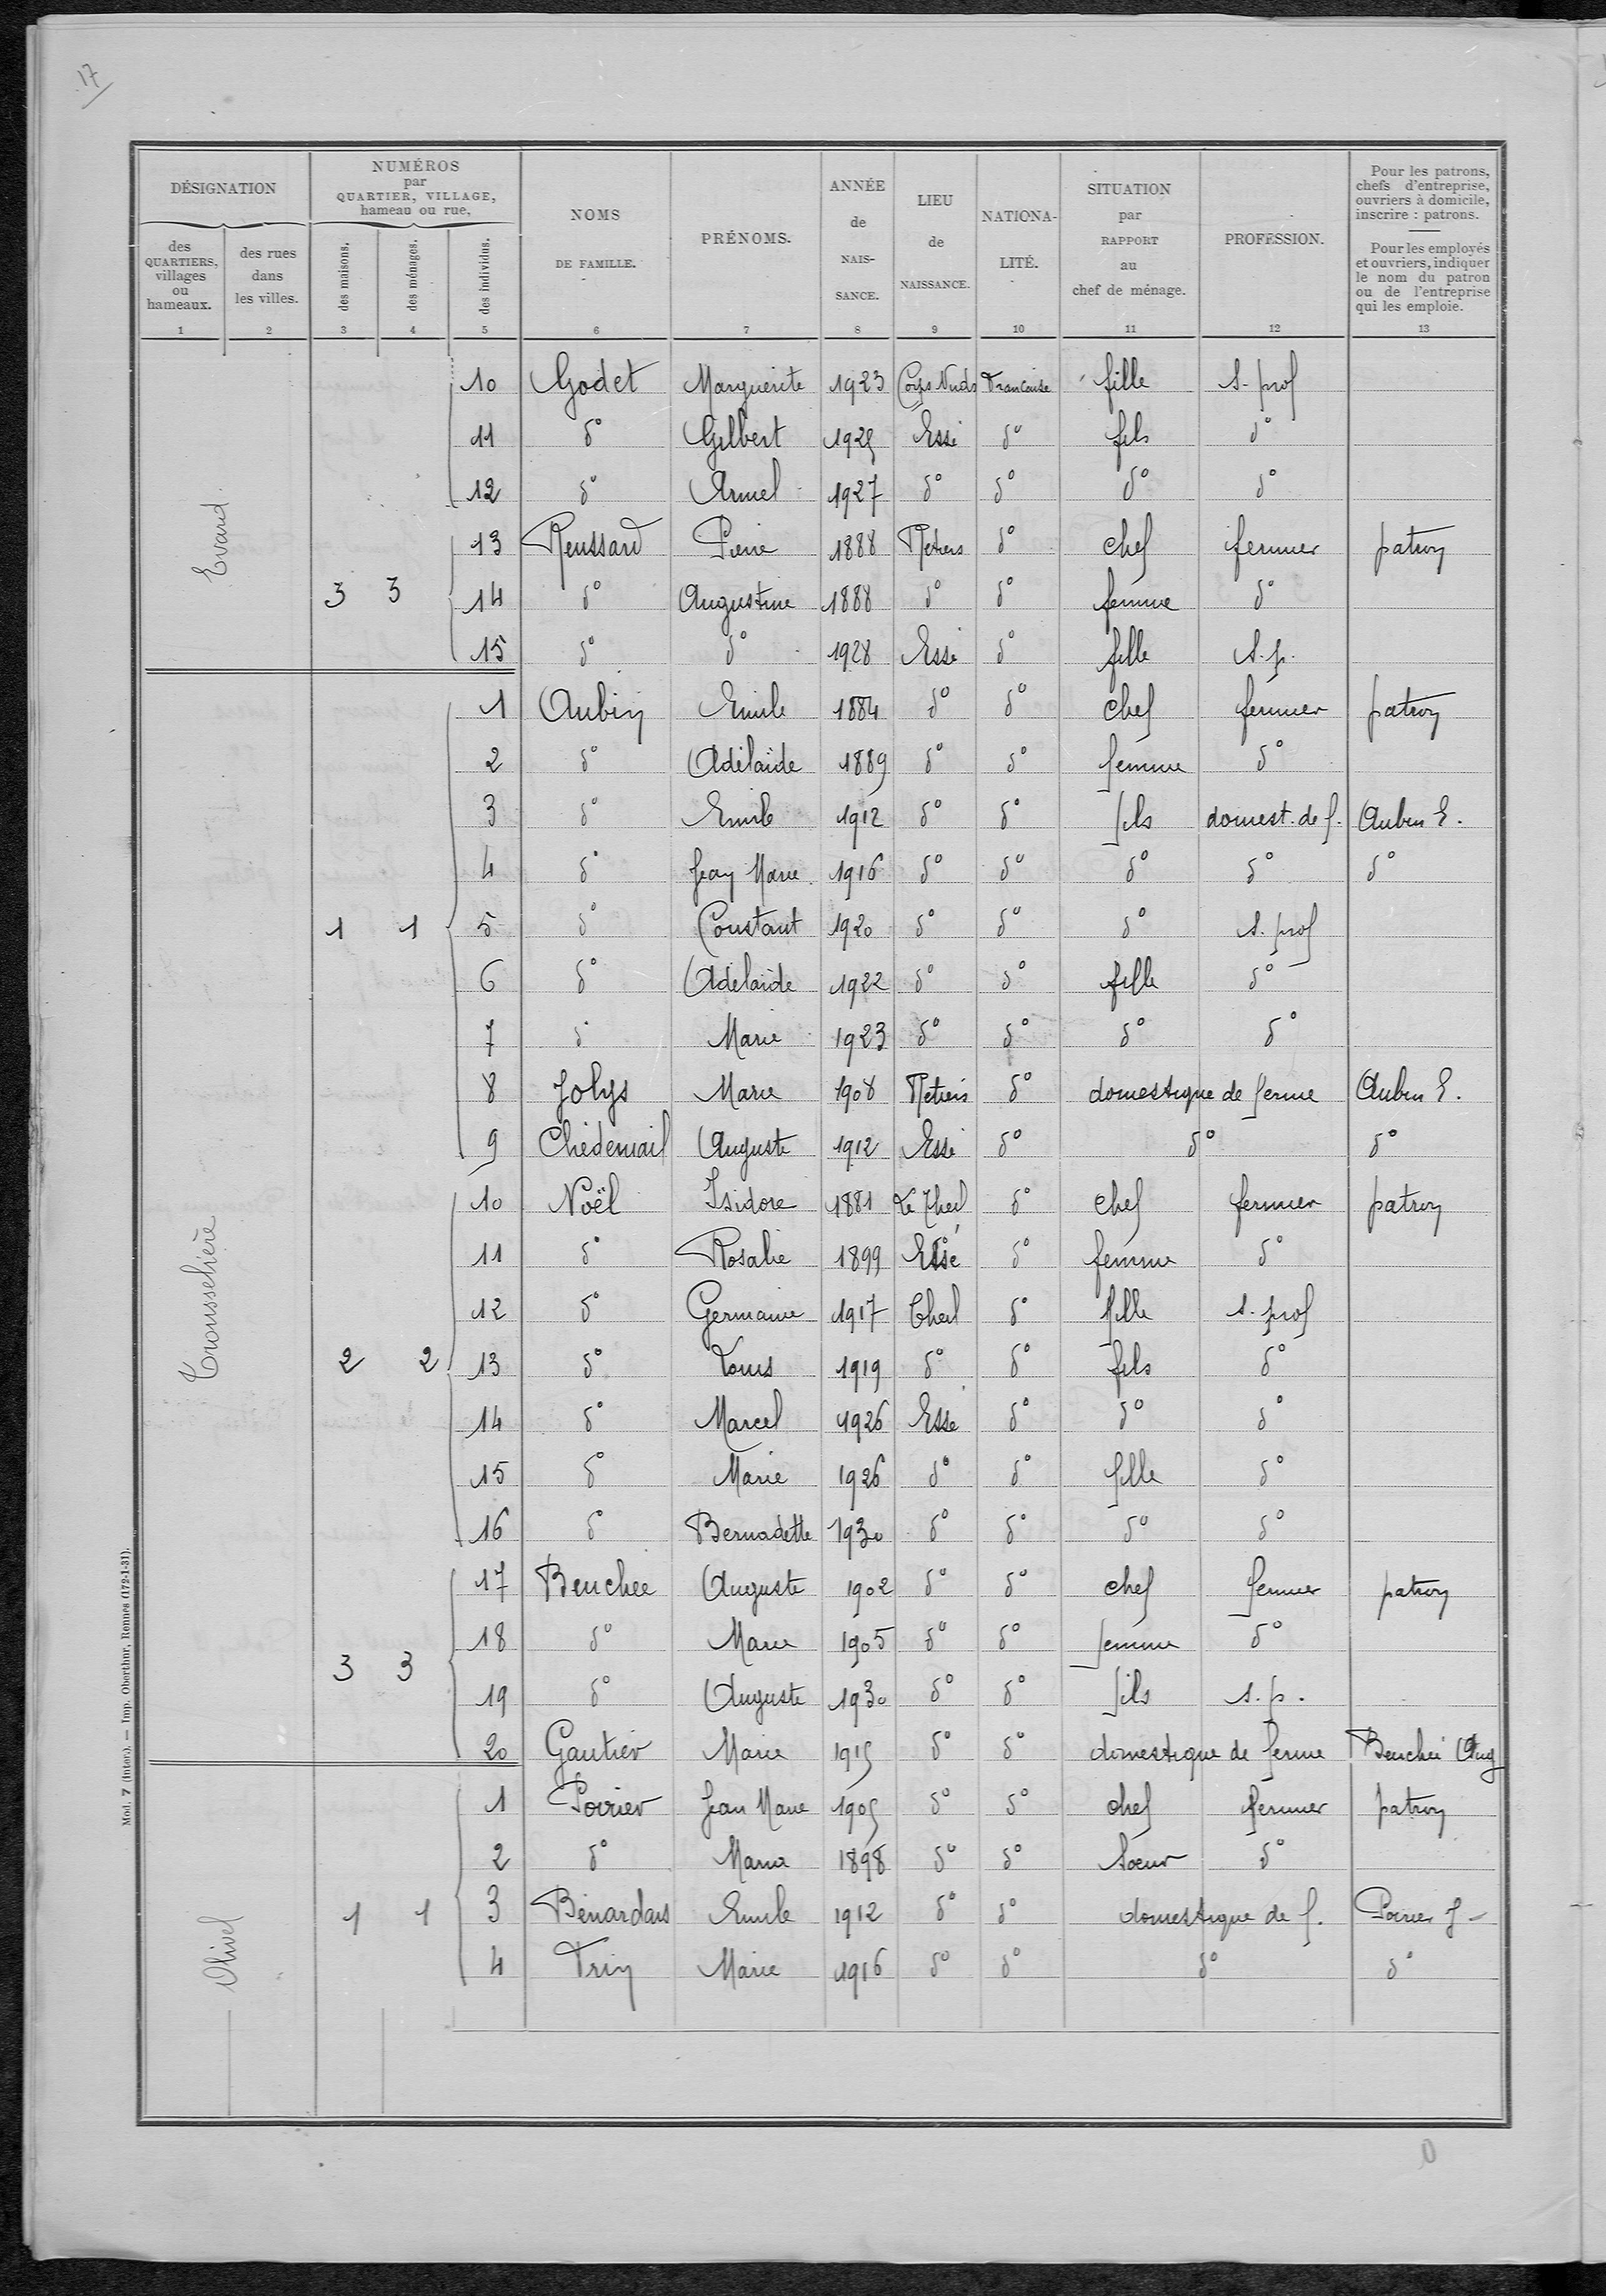 17
DÉSIGNATION
NUMÉROS
par
QUARTIER, VILLAGE,
hameau ou rue.
des
QUARTIERS,
villages
ou
hameaux.
des rues
dans
les villes.
des maisons.
des ménages.
des individus.
NOMS
DE FAMILLE.
PRÉNOMS.
ANNÉE
de
NAIS-
SANCE.
LIEU
de
NAISSANCE.
NATIONA-
LITÉ.
SITUATION
par
RAPPORT
au
chef de ménage.
PROFESSION.
Pour les patrons,
chefs d'entreprise,
ouvriers à domicile,
inscrire : patrons.
Pour les employés
et ouvriers, indiquer
le nom du patron
ou de l'entreprise
qui les emploie.
1 2 3 4 5 6 7 8 9 10 11 12 13
Evard
10 Godet Marguerite 1923 Corps Nuds Française fille s. prof
11 d° Gilbert 1925 Essé d° fils d°
12 d° Armel 1927 d° d° d° d°
13 Reussard Pierre 1888 Retiers d° chef fermier patron
3 3 14 d° Augustine 1888 d° d° femme d°
15 d° d° 1928 Essé d° fille s. p.
Trousselière
1 Aubin Emile 1884 d° d° chef fermier patron
2 d° Adélaïde 1889 d° d° femme d°
3 d° Emile 1912 d° d° fils domest. de f. Aubin E.
4 d° Jean Marie 1916 d° d° d° d° d°
1 1 5 d° Constant 1920 d° d° d° s. prof
6 d° Adelaïde 1922 d° d° fille d°
7 d° Marie 1923 d° d° d° d°
8 Jolys Marie 1908 Retiers d° domestique de ferme Aubin E.
9 Chédemail Auguste 1912 Essé d° d° d°
10 Noël Isidore 1881 Le Theil d° chef fermier patron
11 d° Rosalie 1899 Essé d° femme d°
12 d° Germaine 1917 Theil d° fille s. prof
2 2 13 d° Louis 1919 d° d° fils d°
14 d° Marcel 1926 Essé d° d° d°
15 d° Marie 1926 d° d° fille d°
16 d° Bernadette 1930 d° d° d° d°
17 Beuchee Auguste 1902 d° d° chef fermier patron
18 d° Marie 1905 d° d° femme d°
3 3
19 d° Auguste 1930 d° d° fils s. p.
20 Gautier Marie 1915 d° d° domestique de ferme Beuchée Aug
Olivel
1 Poirier Jean Marie 1905 d° d° chef fermier patron
2 d° Maria 1898 d° d° soeur d°
1 1 3 Bénardais Emile 1912 d° d° domestique de f. Poirier J
4 Trin Marie 1916 d° d° d° d°
Mod. 7 (Inter.). — Imp. Oberthur, Rennes (172-1-31).